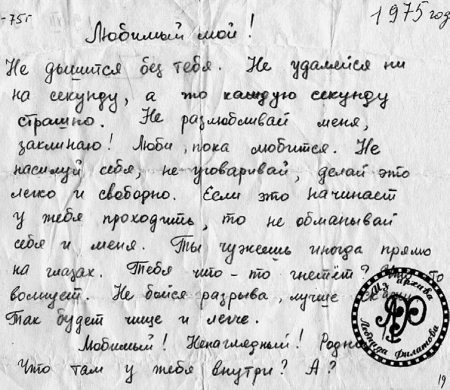 -75г
1975 год
Любимый мой!
Не дышится без тебя. Не удаляйся ни
на секунду, а то каждую секунду
страшно. Не разлюбливай меня,
заклинаю! Люби, пока любится. Не
насилуй себя, не уговаривай, делай это
легко и свободно. Если это начинает
у тебя проходить, то не обманывай
себя и меня. Ты чужеешь иногда прямо
на глазах. Тебя что-то гнетёт? Что-то
волнует. Не бойся разрыва, лучше
Так будет чище и легче.
Любимый! Ненаглядный!
Что там у тебя внутри? А?
Из архива
Леонида Филатова
19